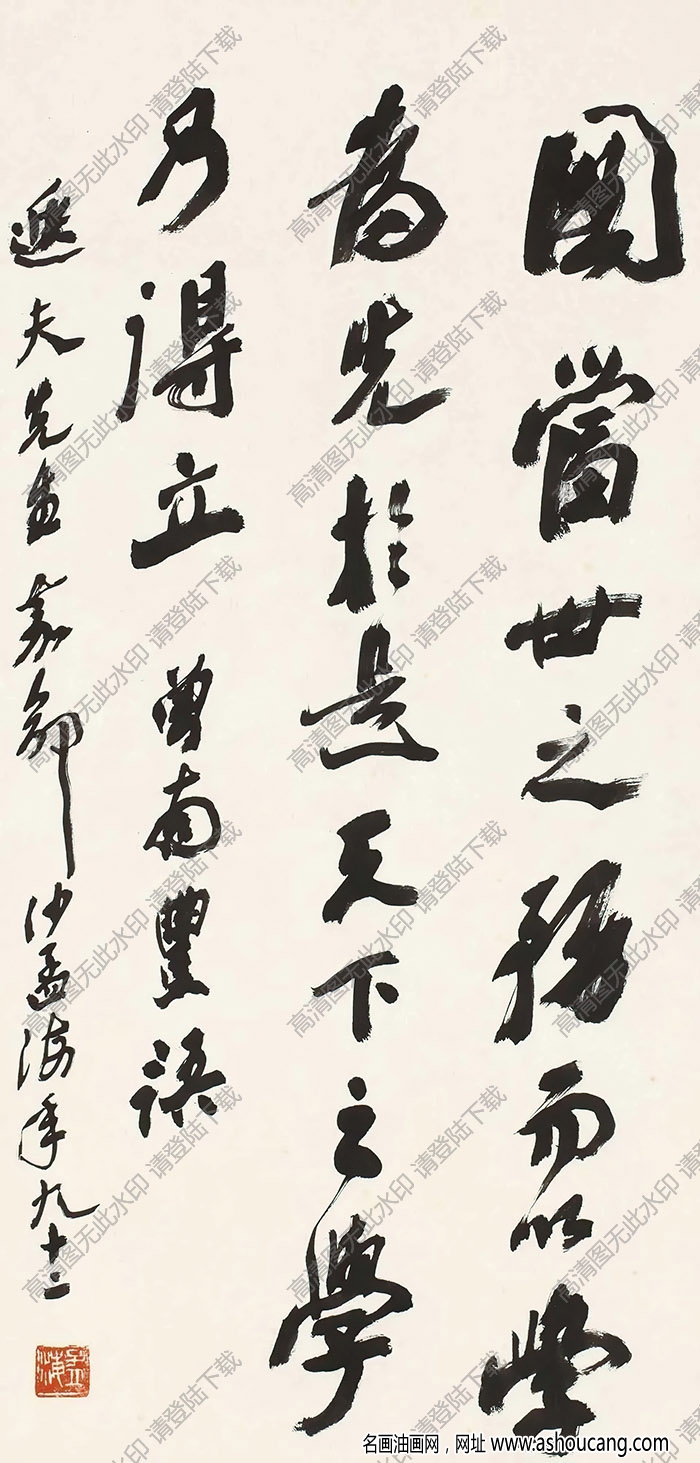 圖當世之務而以學
為先於是天下之學
乃得立 曾南豐語
夫先生嘉命 沙孟海年九十二
高清图无此水印 请登陆下载
名画油画网，网址 www.ashoucang.com